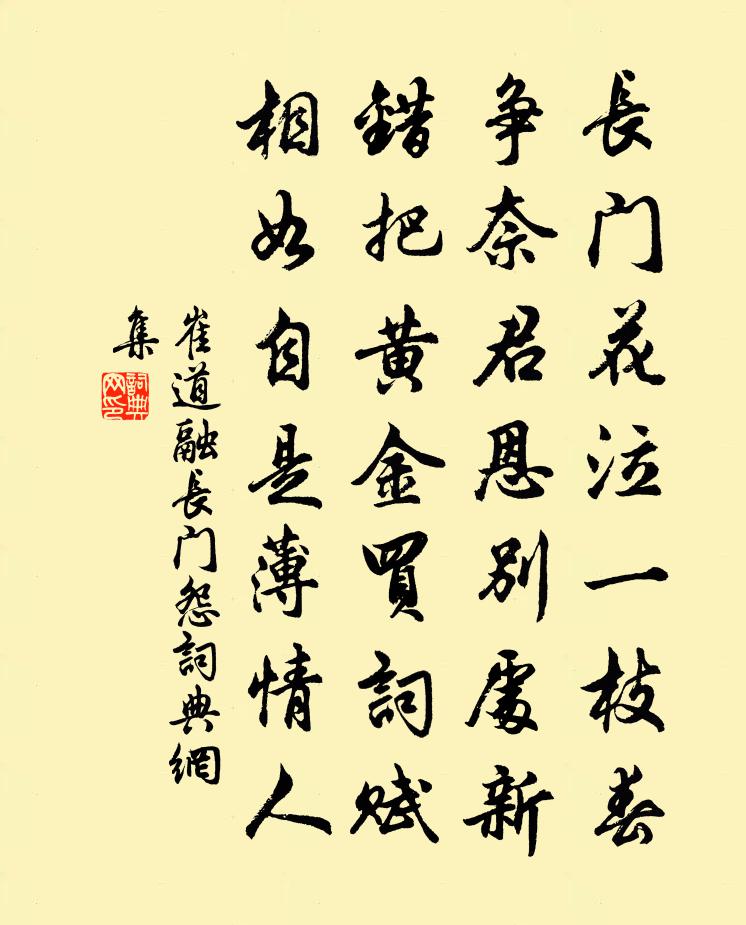 長门花泣一枝春
争奈君恩别處新
錯把黄金買詞赋
相如自是薄情人
崔道融長门怨詞典網
集
詞典
网印